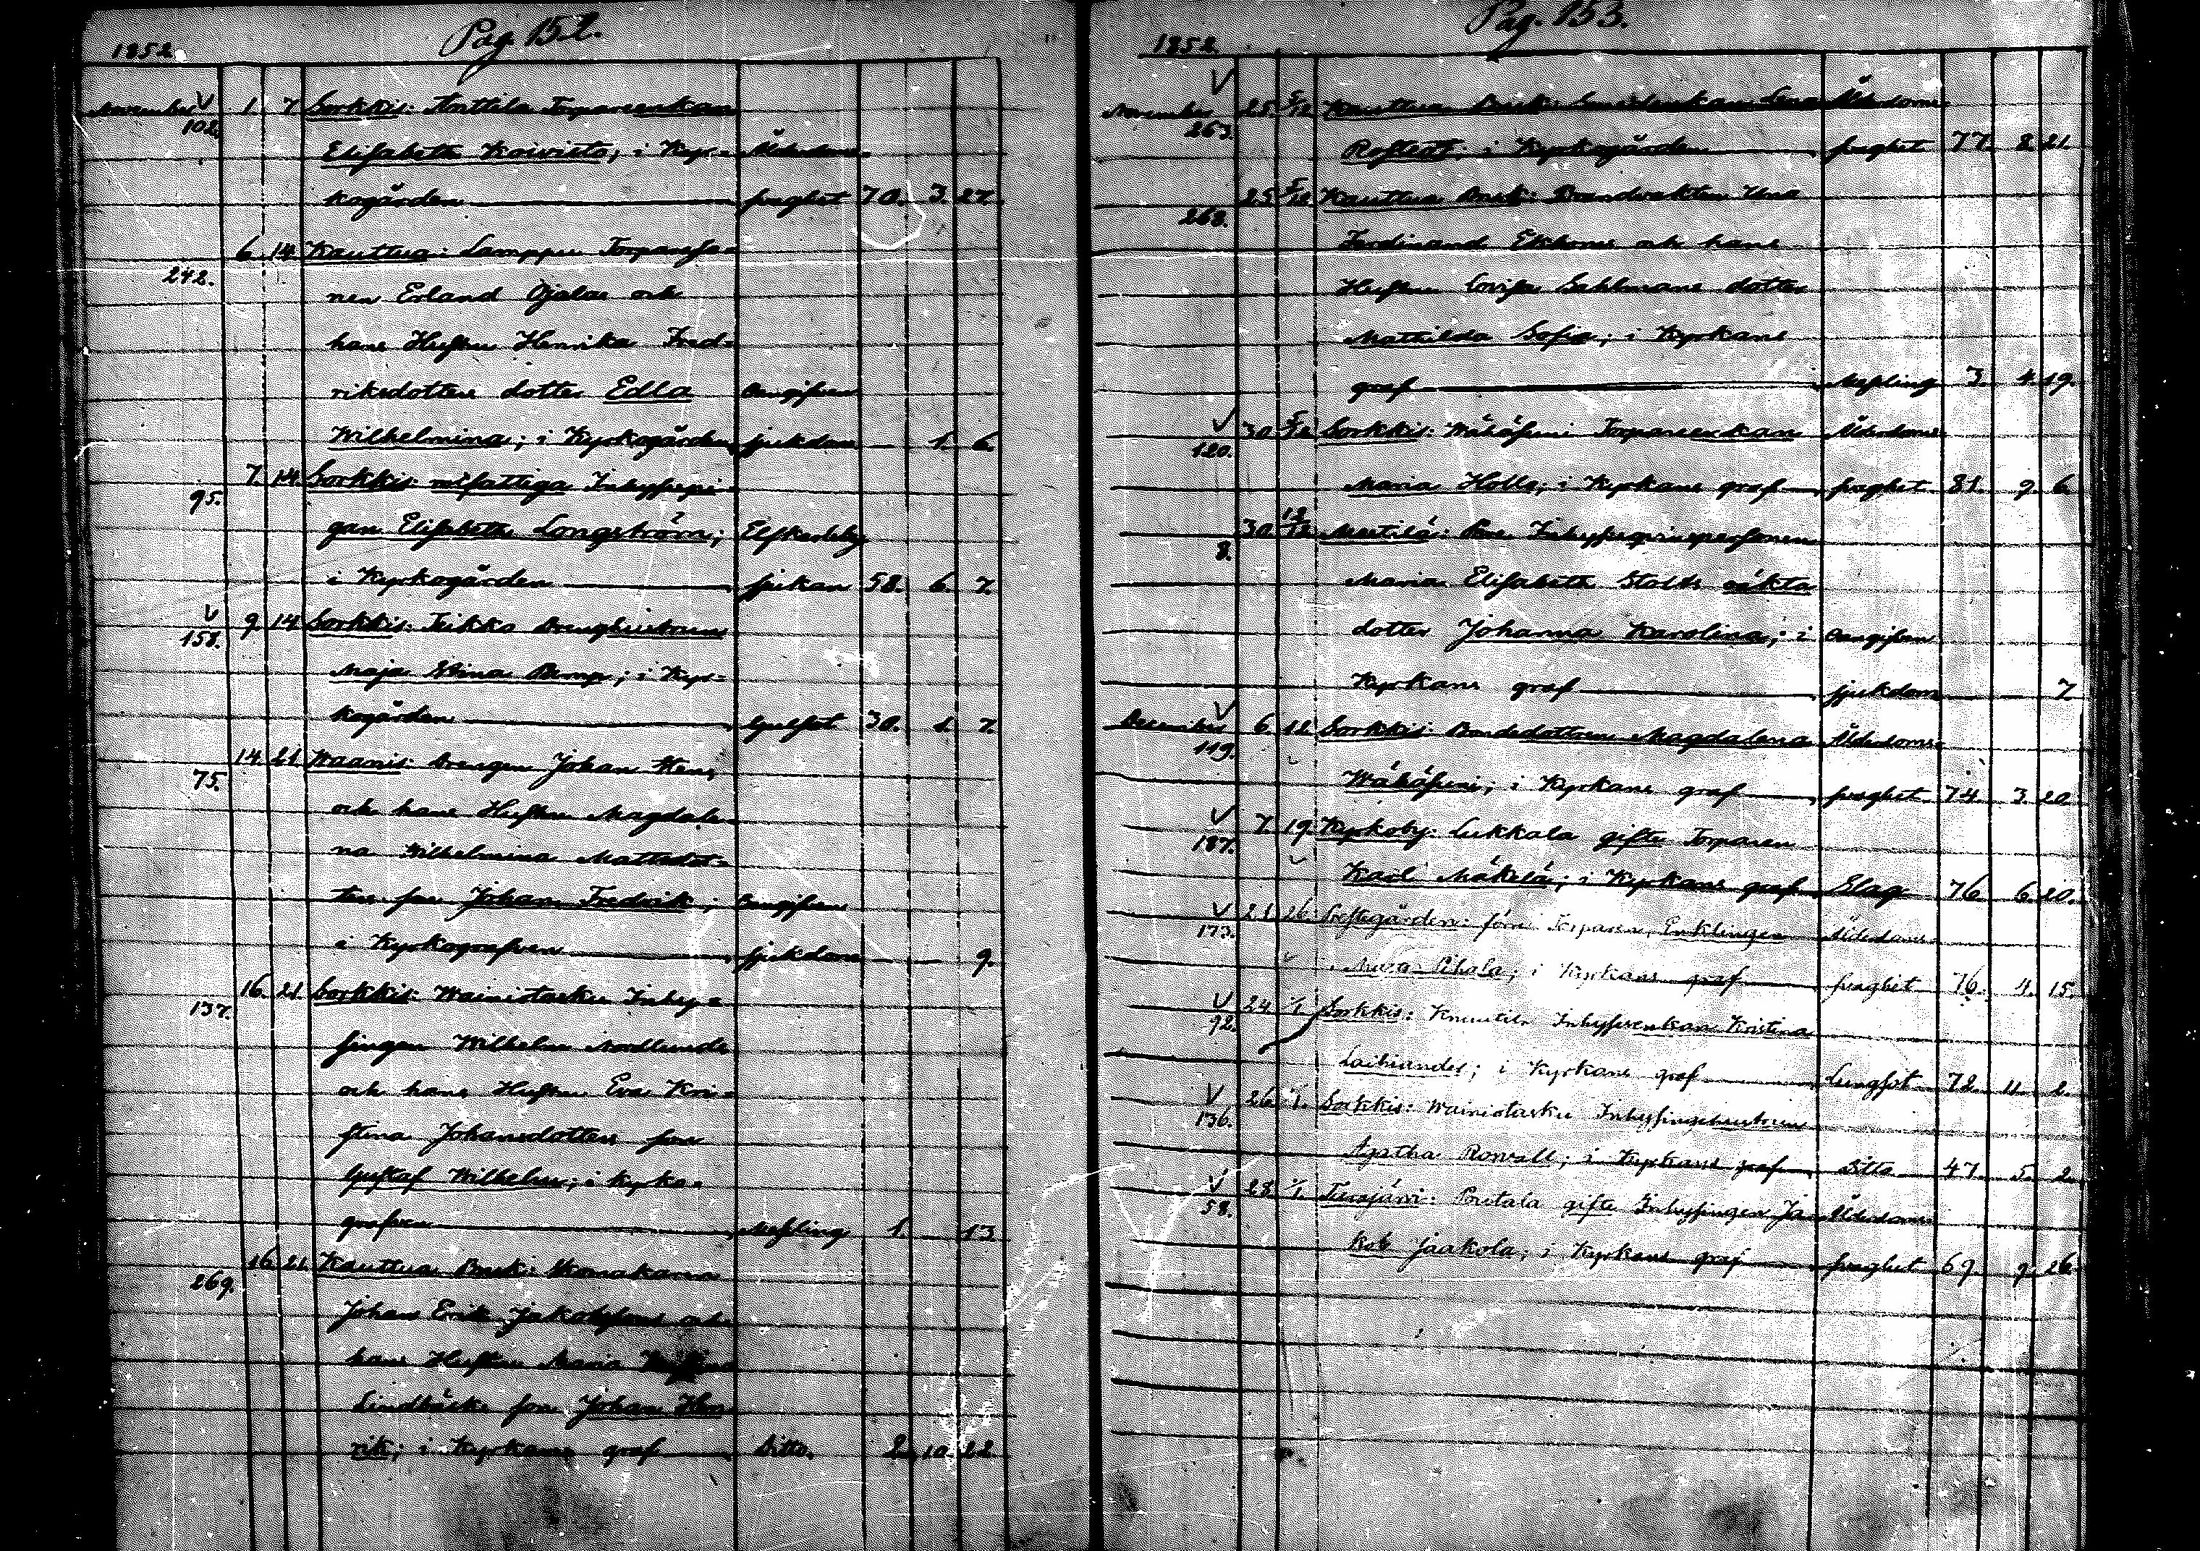 1852 Pag. 152.
November 102. 1. 7. Sorkkis: Anttila Torpareenkan
Elisabeth Koivisto; i Kyr- Ålderdoms-
kogården fraghet 70. 3. 27.
242. 6. 14. Kauttua: Lamppu Torparesso-
nen Erland Ojalas och
hans Hustru Henrika Fred-
riksdotters dotter Edla Oangifven
Wilhelmina; i Kyrkogården sjukdom 1. 6.
95. 7. 14. Sorkkis: utfattiga Inhysespi-
gan Elisabeth Longström;
i Kyrkogården sjukan 58. 6. 7.
158. 9. 14. Sorkkis: Teikko Drenghustrun
Maja Stina Pump; i Kyr-
kogården Gulsot 30. 1. 7.
75. 14. 21. Waanis: Drengen Johan
och hans Hustru Magdale-
na Wilhelmina Mattsdot-
ters son Johan Fredrik; Oangifven
i Kyrkografven sjukdom 9.
137. 16. 21. Sorkkis: Wainiotasku Inhy-
singen Wilhelm Nordlunds
och hans Hustru Eva Kri-
stina Johansdotters son
Gustaf Wilhelm; i kyrko-
grafven Messling 1. 13.
269. 16. 21. Kauttua Bruk:
Johan Erik Jakobssons och
hans Hustru Maria
Lindbäcks son Johan Hen-
rik; i Kyrkans graf Ditto. 2. 10. 22.
1852. Pag. 153.
November 263. 25. 5/12 Kauttua Bruk: Smedenkan Lena Ålderdoms-
i Kyrkogården fraghet 77. 8. 21.
268. 25. 5/12 Kauttua Bruk: Brandvakten Una
Ferdinand Ekbloms och hans
Hustru Lovisa Sahlmans dotter
Mathilda Sofia; i Kyrkans
graf Messling 3. 4. 19.
120. 30. 5/12 Sorkkis: Wähässeni Torpareenkan Ålderdoms-
Maria Holls; i Kyrkans graf fraghet 81. 9. 6.
8. 30. 12/12 Mestilä:
Maria Elisabeth Stolts oäkta
dotter Johanna Karolina; i Oangifven
Kyrkans graf sjukdom 7.
December 119. 6. 12. Sorkkis: Bondedottern Magdalena Ålderdoms-
Wähässeni; i Kyrkans graf fraghet 74. 3. 20.
187. 7. 19. Kyrkoby: Lukkala gifte Torparen
Karl Mäkelä; i Kyrkans graf Slag 76 6. 20.
173. 21. 26. Prestegården: förre Torparen Enklingen Ålderdoms-
Pihala; i Kyrkans graf fraghet 76. 4. 15.
92. 24. 1/1 Sorkkis: Knuutila Inhysesenkan Kristina
Laihiander; i Kyrkans graf Lungsot 72. 11. 2.
136. 26. 1/1. Sorkkis: Wainiotasku Inhysingehustrun
Agatha Ronvall; i Kyrkans graf Ditto 47. 5. 2.
58. 28. 1/1. Turajärvi: Poutala gifte Inhysingen Ja- Ålderdoms-
kob Jaakola; i Kyrkans graf fraghet 69. 9. 26.